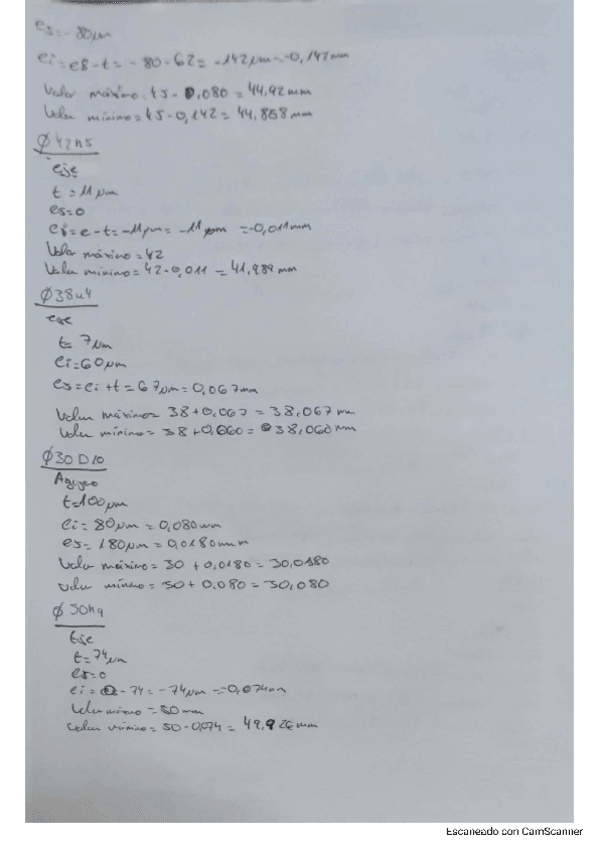 es = - 80 µm
ei = es - t = - 80 - 62 = - 142 µm = -0,142 mm
Valor máximo = 45 - 0,080 = 44,92 mm
Valor mínimo = 45 - 0,142 = 44,858 mm
Ø 42 h5
eje
t = 11 µm
es = 0
ei = e - t = -11 µm = -11 µm = -0,011 mm
Valor máximo = 42
Valor mínimo = 42 - 0,011 = 41,989 mm
Ø 38 u4
eje
t = 7 µm
ei = 60 µm
es = ei + t = 67 µm = 0,067 mm
Valor máximo = 38 + 0,067 = 38,067 mm
Valor mínimo = 38 + 0,060 = 38,060 mm
Ø 30 D10
Agujero
t = 100 µm
ei = 80 µm = 0,080 mm
es = 180 µm = 0,0180 mm
Valor máximo = 30 + 0,0180 = 30,0180
Valor mínimo = 30 + 0,080 = 30,080
Ø 50 h9
Eje
t = 74 µm
es = 0
ei = 0 - 74 = - 74 µm = -0,074 mm
Valor máximo = 50 mm
Valor mínimo = 50 - 0,074 = 49,926 mm
Escaneado con CamScanner